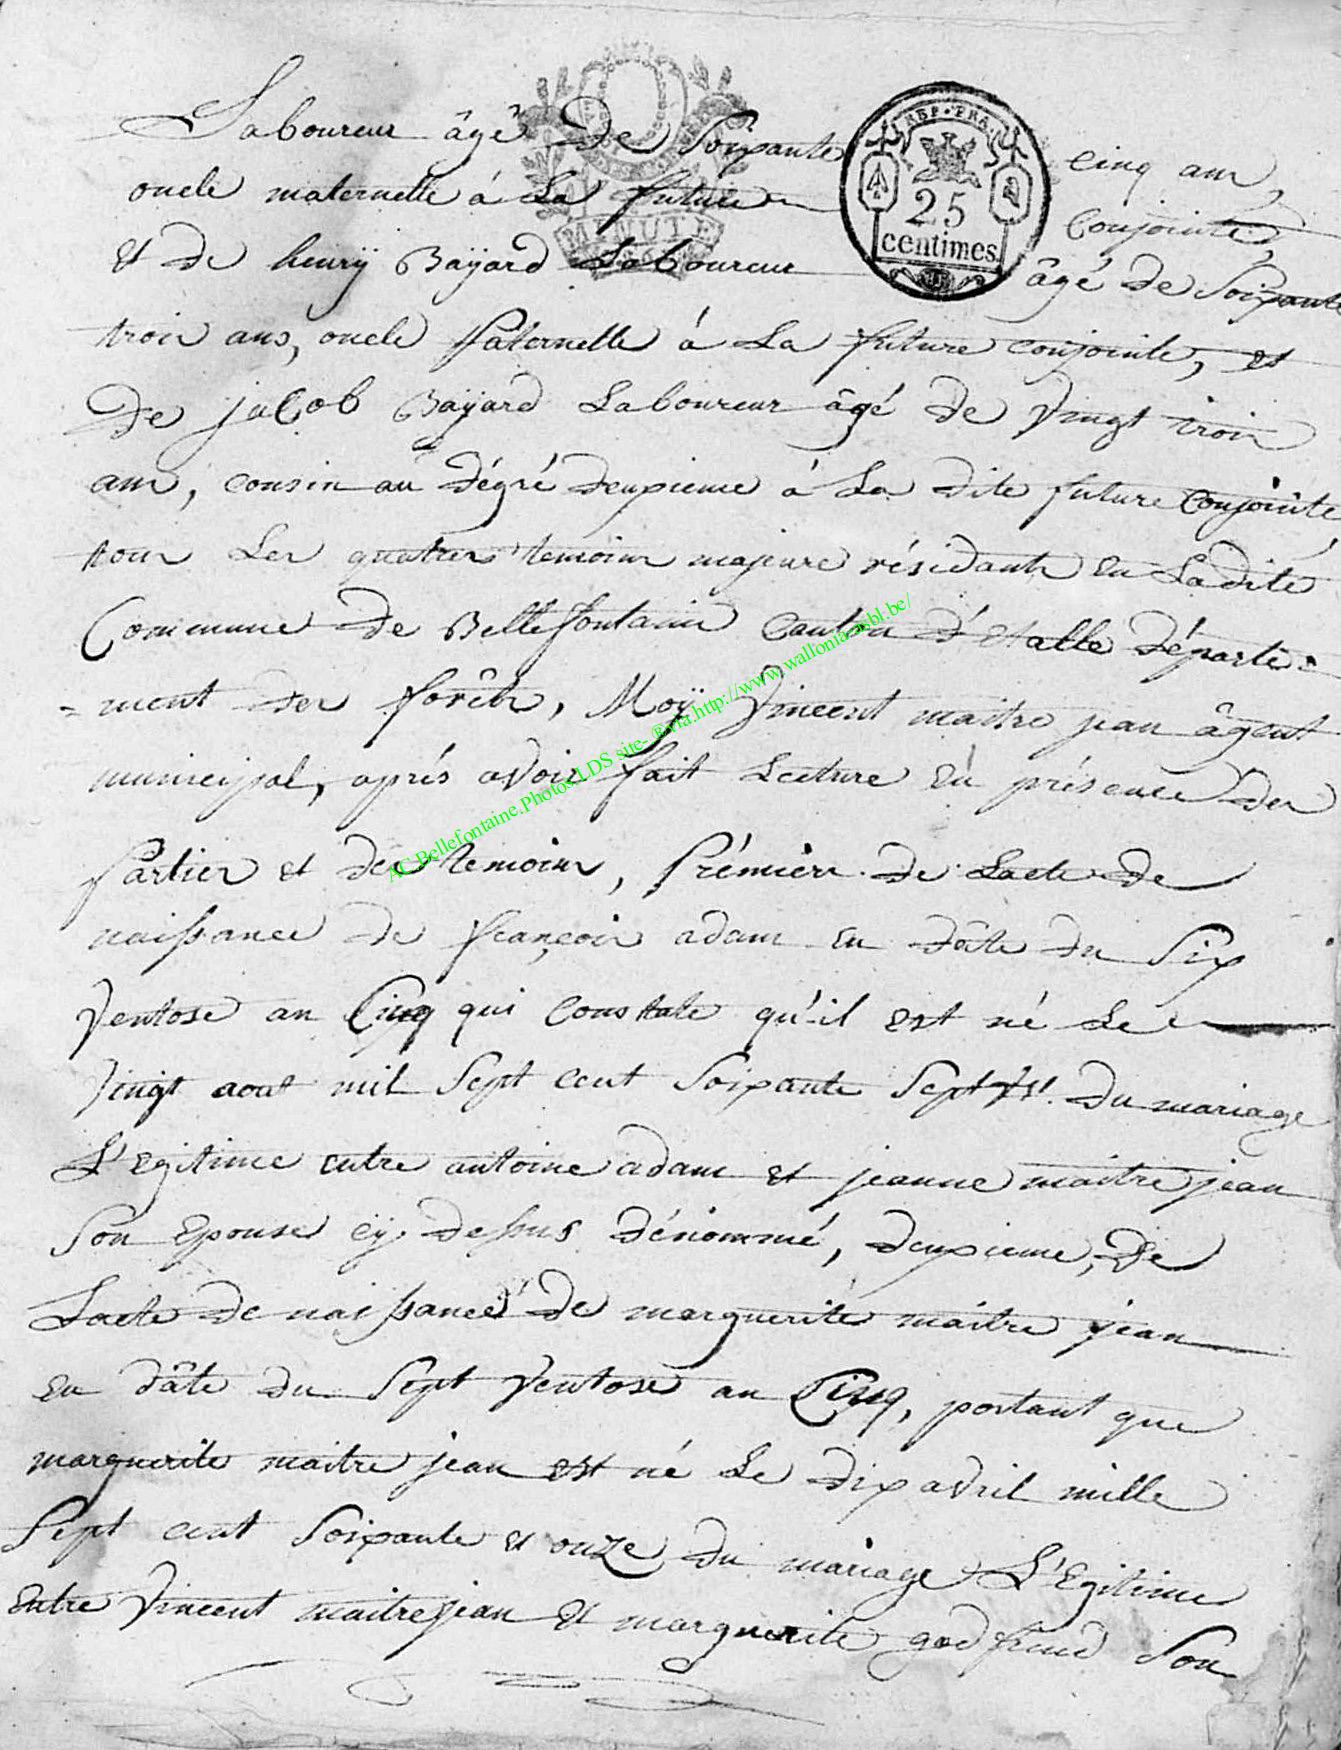 Laboureur âgé de Soixante cinq ans,
oncle maternelle á La future conjointe,
et de henrÿ Baÿard Laboureur âgé de Soixante
trois ans, oncle paternelle á La future conjointe, et
De jacob Baÿard Laboureur âgé de vingt trois
ans, cousin au dégré deuxieme á La dite future conjointe
tous Les quatres temoins majeure résidants en Ladite
Commune de Bellefontaine canton d'Etalle Départe=
=ment des forêts, Moÿ Vincent maitre jean âgent
municipal, aprés avoir fait Lecture en présence des
partiez et des temoins, prémiere de Lacte de
naissance de françois adam en dâte du Six
Ventose an Cinq qui constate qu'il est né Le
vingt aout mil Sept cent Soixante Sept du mariage
L'egitime entre antoine adam et jeanne maitre jean
Son Epouse cÿ dessus dénommé, deuxieme, De
Lacte de naissance de marguerite maitre jean
en dâte du Sept Ventose an Cinq, portant que
marguerite maitre jean est né Le dix avril mille
Sept cent Soixante et onze du mariage L'Egitime
Entre Vincent maitrejean et marguerite godfrind Son
REP. FRA.
25
centimes
MINUTE
AC Bellefontaine.Photos.LDS site- ®via.http://www.wallonia-asbl.be/